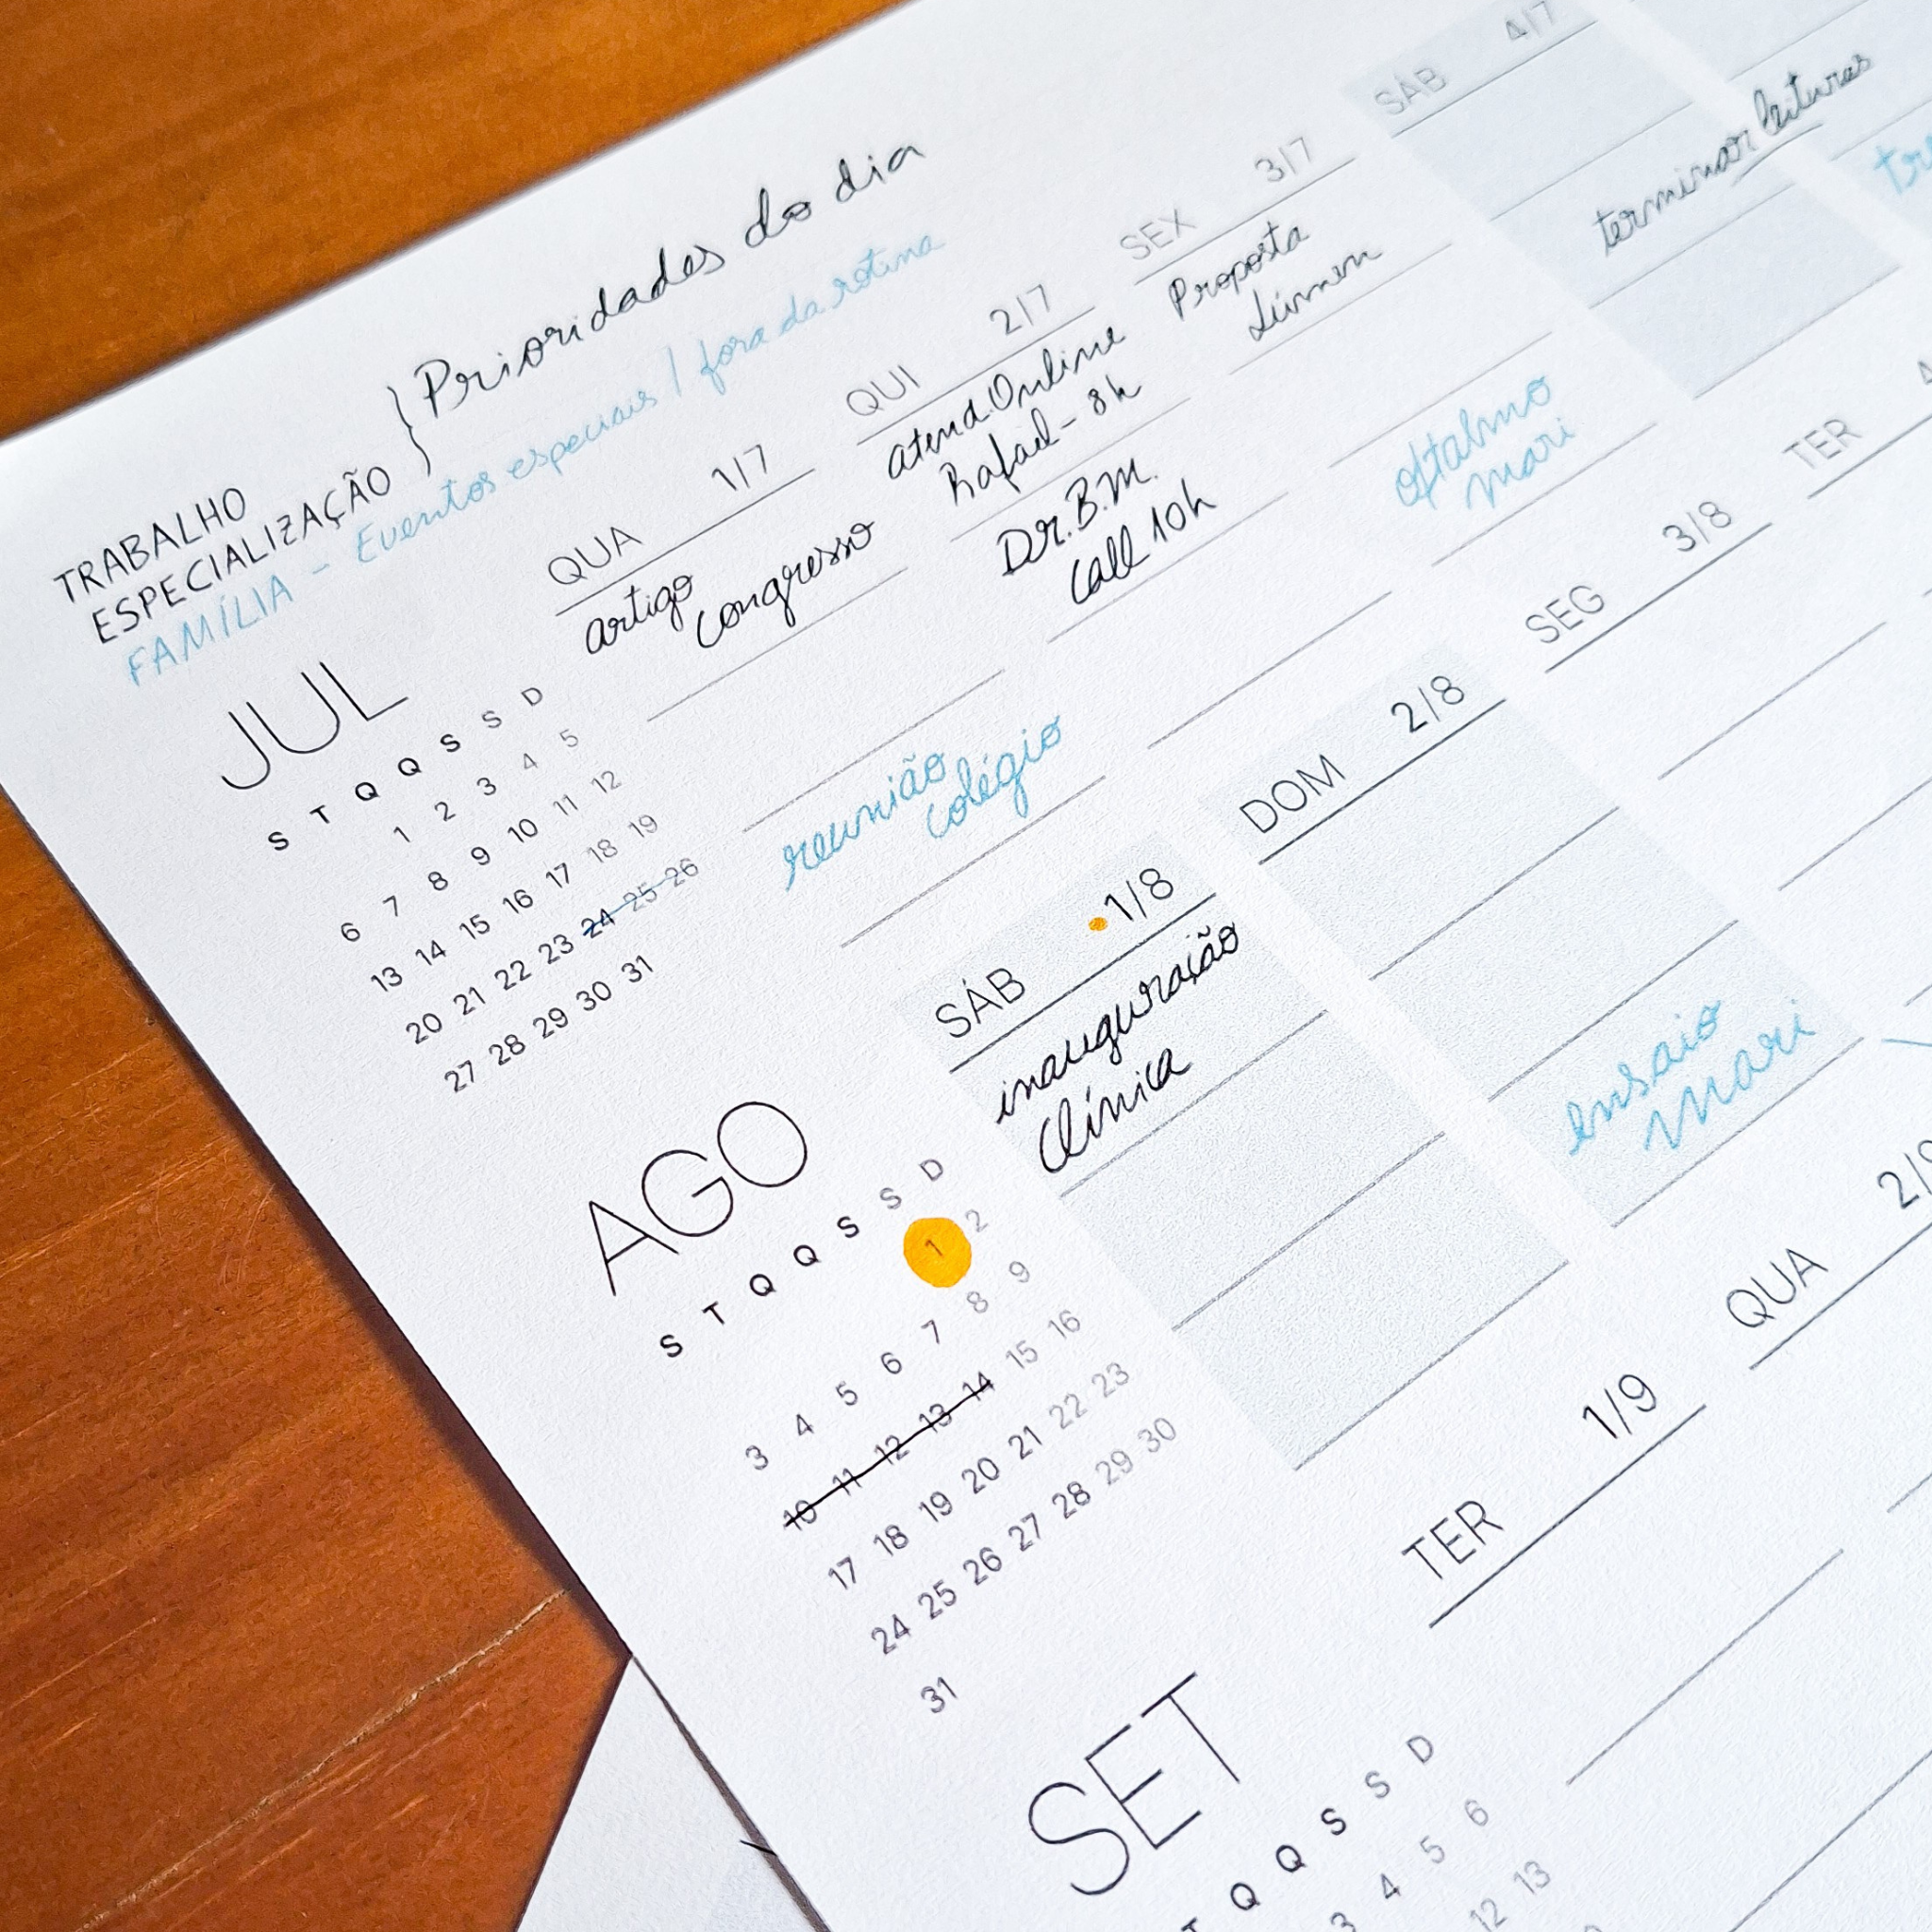 TRABALHO
ESPECIALIZAÇÃO } Prioridades do dia
FAMÍLIA - Eventos especiais / fora da rotina
JUL
S T Q Q S S D
1 2 3 4 5
6 7 8 9 10 11 12
13 14 15 16 17 18 19
20 21 22 23 24 25 26
27 28 29 30 31
QUA 1/7
artigo
congresso
reunião
colégio
QUI 2/7
atend. Online
Rafael - 8h
Dr. B.M.
Call 10h
SEX 3/7
Proposta
Lúmen
oftalmo
mari
SÁB 4/7
terminar leituras
AGO
S T Q Q S S D
1 2
3 4 5 6 7 8 9
10 11 12 13 14 15 16
17 18 19 20 21 22 23
24 25 26 27 28 29 30
31
SÁB 1/8
inauguração
Clínica
DOM 2/8
ensaio
mari
SEG 3/8
TER
SET
T Q Q S S D
3 4 5 6
12 13
TER 1/9
QUA